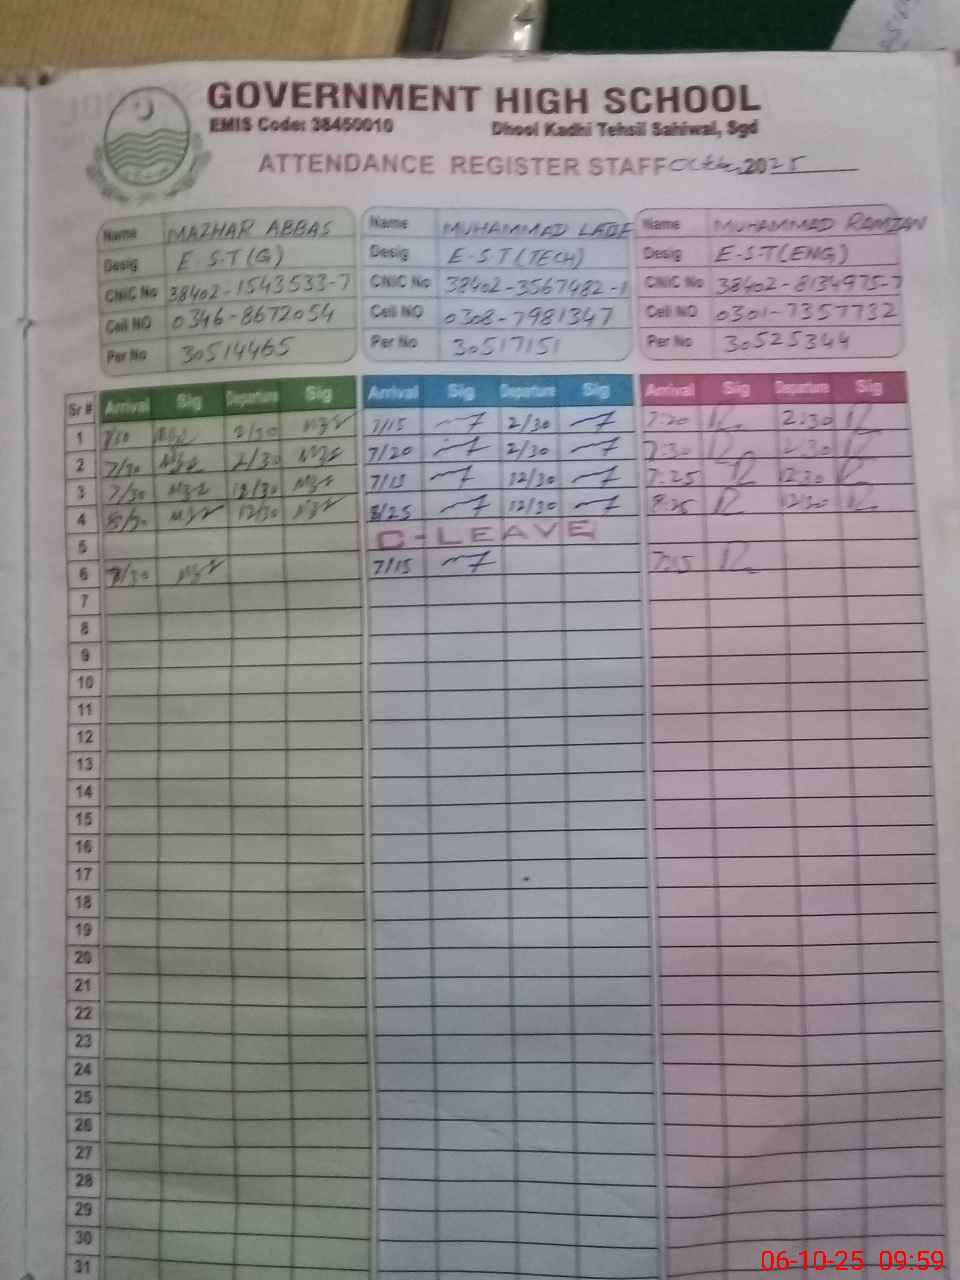 GOVERNMENT HIGH SCHOOL
EMIS Code: 38450010 Dhool Kadhi Tehsil Sahiwal, Sgd
ATTENDANCE REGISTER STAFF 2025
Name MAZHAR ABBAS Name MUHAMMAD Name MUHAMMAD RAMZAN
Desig E.S.T(G) Desig E.S.T(TECH) Desig E.S.T(ENG)
CNIC No 38402-1543533-7 CNIC No 38402-3567482-1 CNIC No 38402-8134975-7
Cell NO 0346-8672054 Cell NO 0308-7981347 Cell NO 0301-7357732
Per No 30514465 Per No 30517151 Per No 30525344
Sr # Arrival Sig Departure Sig Arrival Sig Departure Sig Arrival Sig Departure Sig
1 2/30 7/15 2/30 7:20 2:30
2 7/30 2/30 7/20 2/30 7:30 2:30
3 7/30 12/30 7/15 12/30 7:25 12:30
4 12/30 8/25 12/30 8:25 12:30
5 C-LEAVE
6 7/30 7/15 7:15
7
8
9
10
11
12
13
14
15
16
17
18
19
20
21
22
23
24
25
26
27
28
29
30
31
06-10-25 09:59